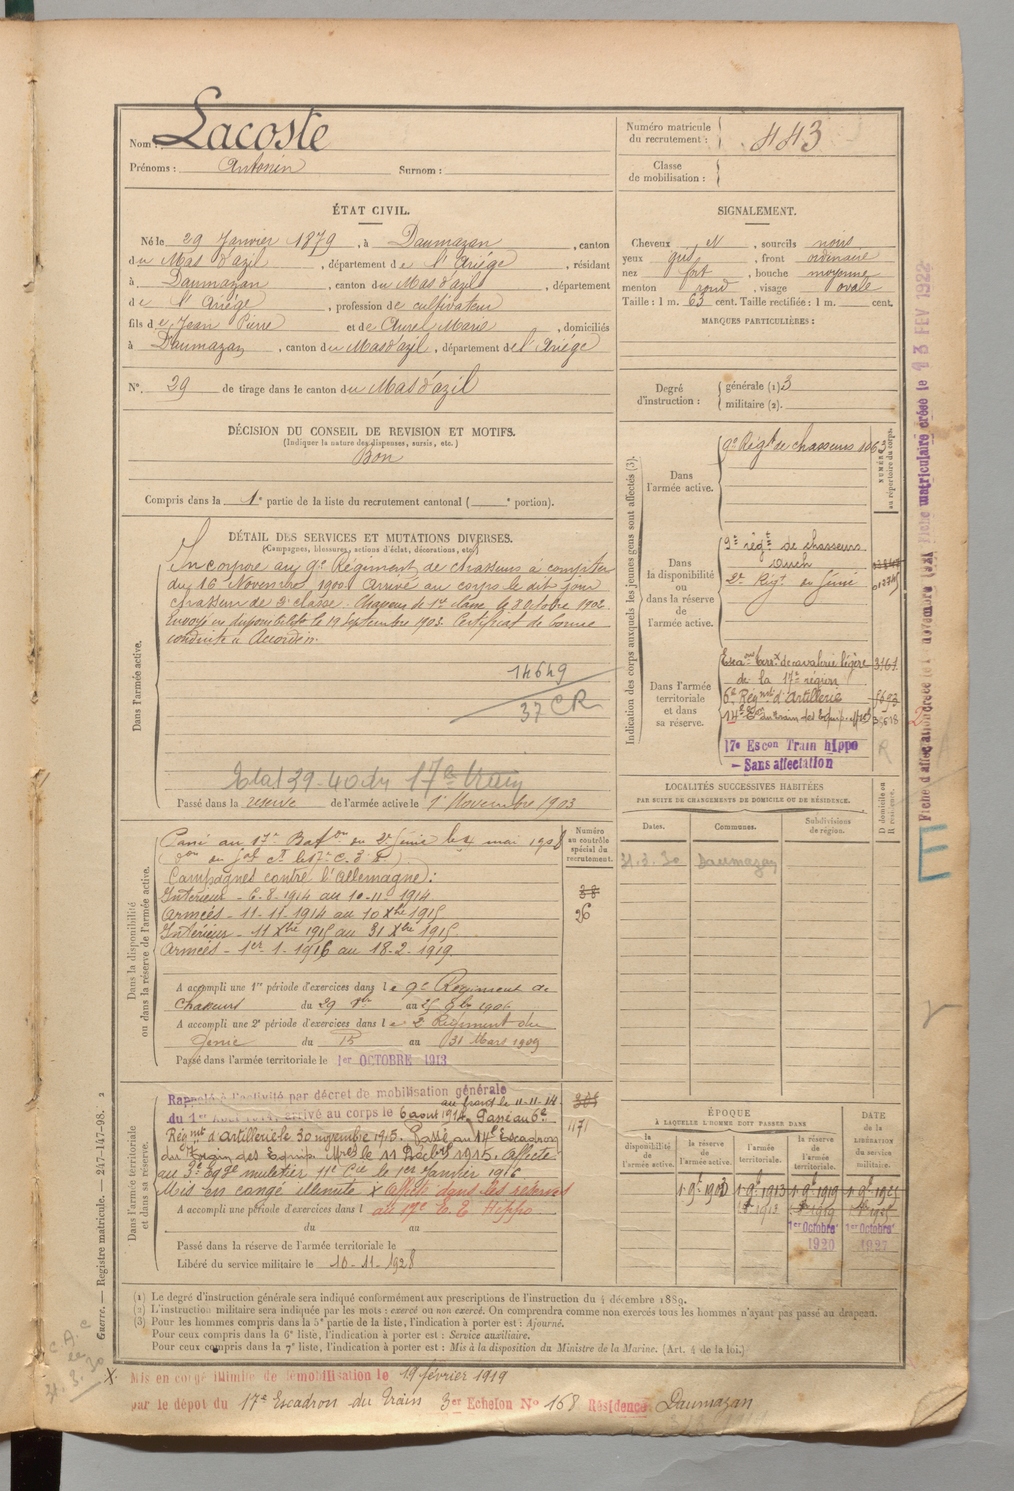 Nom : Lacoste
Prénoms : Antonin Surnom :
Numéro matricule du recrutement : 443
Classe de mobilisation :
ÉTAT CIVIL.
Né le 29 Janvier 1879, à Daumazan, canton
du Mas d'azil, département de l'Ariège, résidant
à Daumazan, canton du Mas d'azil, département
de l'Ariège, profession de cultivateur
fils de Jean Pierre et de Aurel Marie, domiciliés
à Daumazan, canton du Mas d'azil, département de l'Ariège
N°. 29 de tirage dans le canton du Mas d'azil
SIGNALEMENT.
Cheveux N, sourcils noirs
yeux gris, front ordinaire
nez fort, bouche moyenne
menton rond, visage ovale
Taille : 1 m. 63 cent. Taille rectifiée : 1 m. cent.
MARQUES PARTICULIÈRES :
Degré d'instruction : générale (1) 3
militaire (2).
DÉCISION DU CONSEIL DE REVISION ET MOTIFS.
(Indiquer la nature des dispenses, sursis, etc.)
Bon
Compris dans la 1e partie de la liste du recrutement cantonal ( e portion).
DÉTAIL DES SERVICES ET MUTATIONS DIVERSES.
(Campagnes, blessures, actions d'éclat, décorations, etc.)
Dans l'armée active.
Incorporé au 9e Régiment de chasseurs à compter
du 16 Novembre 1900. Arrivé au corps le dit jour
chasseur de 2e classe. Chasseur de 1re classe le 8 Octobre 1902.
Envoyé en disponibilité le 19 Septembre 1903. Certificat de bonne
conduite Accordé.
14649
37 CR
Etat 39-40 du 17e Train
Passé dans la réserve de l'armée active le 1er Novembre 1903
Indication des corps auxquels les jeunes gens sont affectés (3).
NUMÉROS au répertoire du corps.
Dans l'armée active.
9e Régt de chasseurs
Dans la disponibilité ou dans la réserve de l'armée active.
9e régt de chasseurs
Auch
2e Régt du Génie
Dans l'armée territoriale et dans sa réserve.
de cavalerie légère 3161
de la 17e région
6e Régmt d'Artillerie
17e Escon Train hippo
– Sans affectation
R
LOCALITÉS SUCCESSIVES HABITÉES
PAR SUITE DE CHANGEMENTS DE DOMICILE OU DE RÉSIDENCE.
D domicile ou R résidence.
Dates. Communes. Subdivisions de région.
31.3.30 Daumazan
Dans la disponibilité ou dans la réserve de l'armée active.
Numéro au contrôle spécial du recrutement.
Passé au 17e Baton du 2e Génie le 4 mai 1908
Campagnes contre l'Allemagne :
Intérieur - 6-8-1914 au 10-11-1914
Armées - 11-11-1914 au 10 Xbre 1915
Intérieur - 11 Xbre 1915 au 31 Xbre 1915
Armées - 1er-1-1916 au 18-2-1919
38
26
A accompli une 1re période d'exercices dans le 9e Régiment de
Chasseurs du 29 au 25 1906
A accompli une 2e période d'exercices dans le 2e Régiment du
Génie du 15 au 31 Mars 1909
Passé dans l'armée territoriale le 1er OCTOBRE 1913
Dans l'armée territoriale et dans sa réserve.
Rappelé à l'activité par décret de mobilisation générale
au front le 11-11-14
du 1er arrivé au corps le 6 aout 1914. Passé au 6e
Régmt d'artillerie le 30 novembre 1915. Passé au 14e Escadron
du Train des Equip. Mres le 11 Xbre 1915. Affecté
muletier 11e Cie le 1er Janvier 1916
Mis en congé illimité x Affecté dans les réserves
A accompli une période d'exercices dans l au 17e E. T. Hippo
du au
Passé dans la réserve de l'armée territoriale le
Libéré du service militaire le 10-11-1928
1171
ÉPOQUE
À LAQUELLE L'HOMME DOIT PASSER DANS
DATE DE LA LIBÉRATION DU SERVICE MILITAIRE.
la disponibilité de l'armée active. la réserve de l'armée active. l'armée territoriale. la réserve de l'armée territoriale.
1 9bre 1903 1 9bre 1913 1 9bre 1919 1 9bre 1925
1er Octobre 1920
1er Octobre 1927
(1) Le degré d'instruction générale sera indiqué conformément aux prescriptions de l'instruction du 4 décembre 1889.
(2) L'instruction militaire sera indiquée par les mots : exercé ou non exercé. On comprendra comme non exercés tous les hommes n'ayant pas passé au drapeau.
(3) Pour les hommes compris dans la 5e partie de la liste, l'indication à porter est : Ajourné.
Pour ceux compris dans la 6e liste, l'indication à porter est : Service auxiliaire.
Pour ceux compris dans la 7e liste, l'indication à porter est : Mis à la disposition du Ministre de la Marine. (Art. 4 de la loi.)
x Mis en congé illimité de démobilisation le 19 février 1919
par le dépôt du 17e Escadron du Train 3er Echelon No 168 Résidence Daumazan
Guerre. — Registre matricule. — 247-147-98. 2
Fiche matriculaire créée le 13 FEV 1922
E